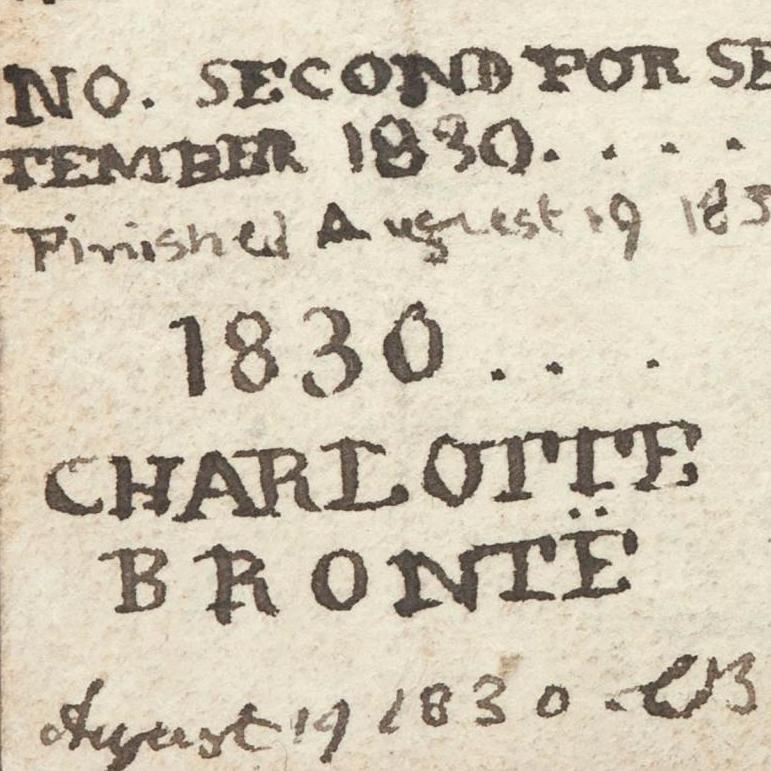 NO. SECOND FOR SE
TEMBER 1830. . . . .
Finished August 19 183
1830 . . .
CHARLOTTE
BRONTË
August 19 1830 - CB